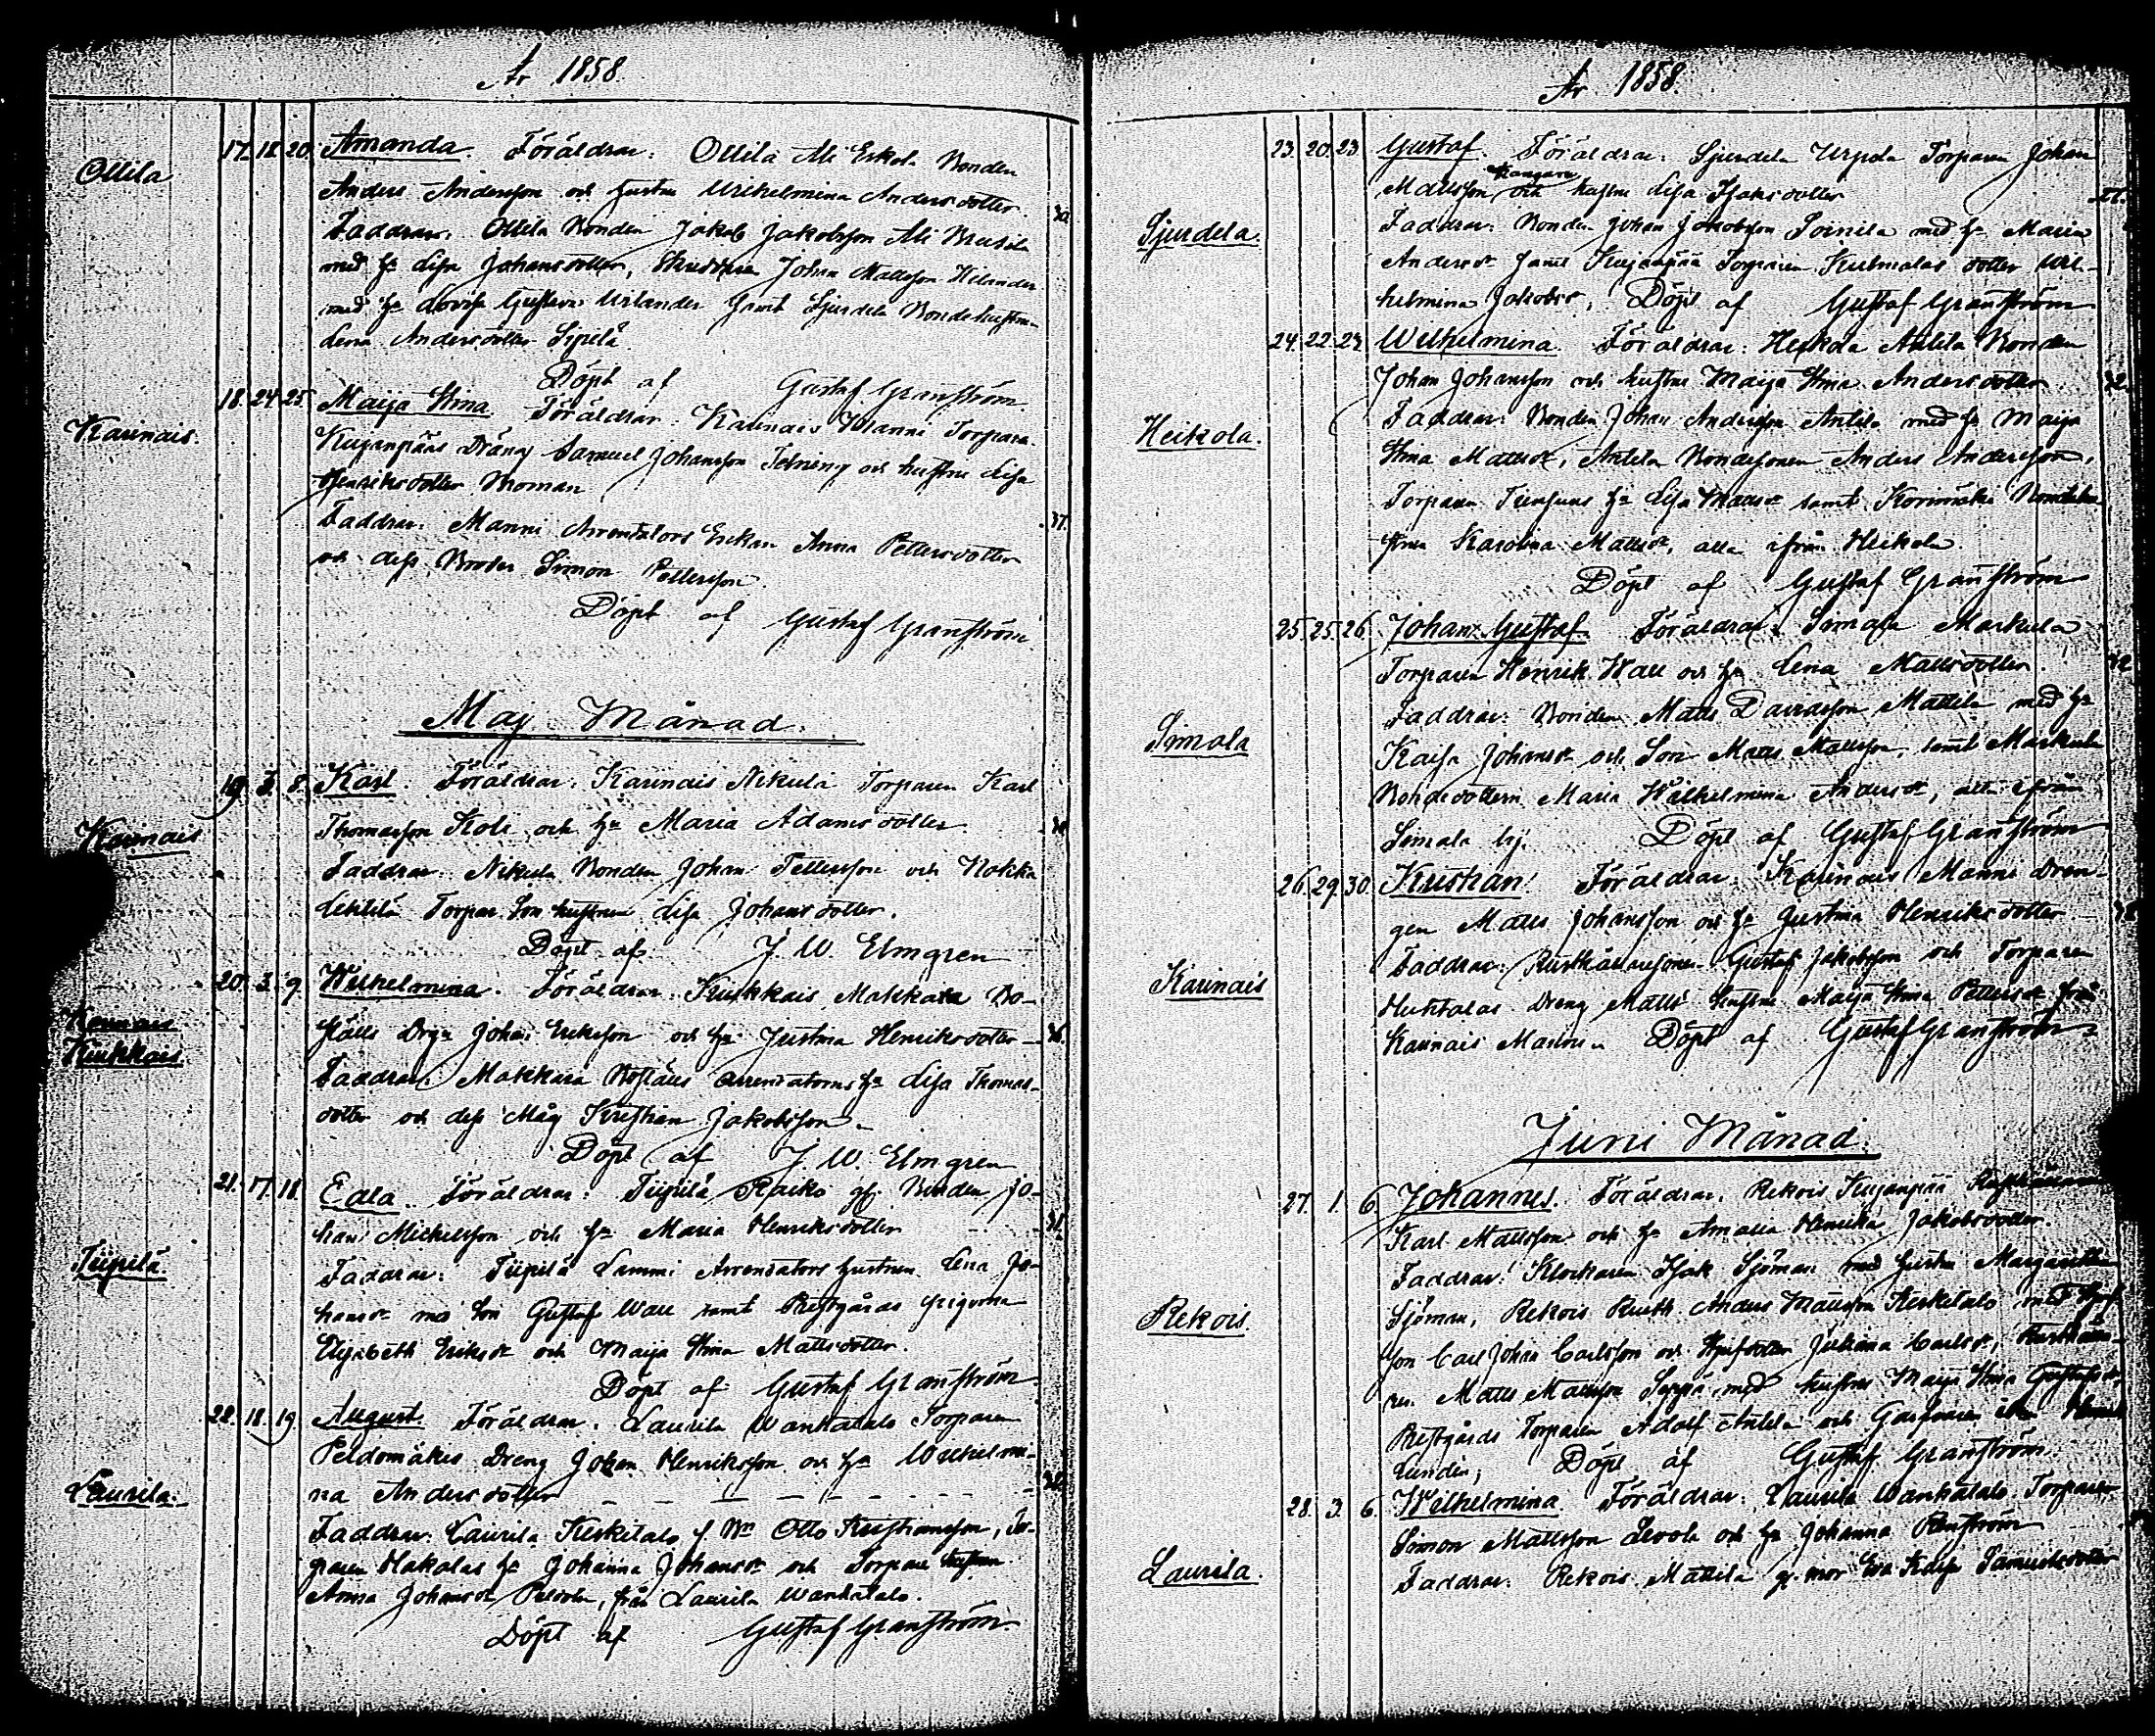 År 1858.
Ollila
17. 18. 20. Amanda. Föräldrar: Ollila Ali Eskola Bonden
Anders Andersson och hustru Wilhelmina Andersdotter.
Faddrar: Ollila Bonden Jakob Jakobsson Ali
med h. Lisa Johansdotter, Johan Mattsson Helander
med h. Lovisa Gustava Urlander samt Sjurdela Bondehustrun
Lena Andersdotter Sipilä.
Döpt af Gustaf Granström.
Karinais.
18. 24. 25. Maija Stina. Föräldrar: Karinais Torparen
Kujanpääs Dräng Samuel Johansson och hustru Lisa
Henriksdotter Woman
37.
Faddrar: Manni Arrendators Enkan Anna Pettersdotter
och dess Broder Simon Pettersson.
Döpt af Gustaf Granström
May Månad.
Karinais
19. 3. 8. Karl. Föräldrar: Karinais Nikula Torparen Karl
Thomasson Koli och h. Maria Adamsdotter.
Faddrar: Nikula Bonden Johan Pettersson och
Torpar Son hustrun Lisa Johansdotter.
Döpt af J. W. Elmgren
Kiukkais.
20. 3. 9. Wilhelmina. Föräldrar: Kiukkais Makkara Bo-
ställs Johan Eriksson och h. Justina Henriksdotter
Faddrar: Makkara arrendatorns h. Lisa Thomas-
dotter och dess Måg Kristian Jakobsson
Döpt af J. W. Elmgren
Tiipilä.
21. 17. 18. Edla. Föräldrar: Tiipilä Raiko Bonden Jo-
han Michelsson och h. Maria Henriksdotter
Faddrar: Tiipilä Lammi Arrendators hustrun Lena Jo-
hansdr med Son Gustaf Wall samt Prestgårds pigorna
Elisabeth Eriksdr och Maija Stina Mattsdotter.
Döpt af Gustaf Granström
Laurila.
22. 18. 19. August. Föräldrar: Laurila Wanhatalo Torparen
Peldomäkis Dreng Johan Henriksson och h. Wilhelmi-
na Andersdotter
Faddrar: Laurila Keskitalo Otto Kristiansson, Tor-
paren Hakalas h. Johanna Johansdr och Torpare hustrun
Anna Johansdr Peldola, från Laurila Wanhatalo.
Döpt af Gustaf Granström.
År 1858.
Sjurdela.
23. 20. 23. Gustaf. Föräldrar: Sjurdela Urpola Torparen Johan
Kangare
Mattsson och hustru Lisa Isaksdotter
Faddrar: Bonden Johan Jakobsson Soinila med h. Maria
Andersdr samt Kujanpää Torparen Kulmalas dotter Wil-
helmina Jakobsdr, Döpt af Gustaf Granström
Heikola.
24. 22. 24. Wilhelmina. Föräldrar: Heikola Antila Bonden
Johan Johansson och hustru Maija Stina Andersdotter.
Faddrar: Bonden Johan Andersson Antila med h. Maija
Stina Mattsdr, Antila Bondesonen Anders Andersson,
Torparen h. Lisa Mattsdr samt Korvimäki
Karolina Mattsdr, alla ifrån Heikola.
Döpt af Gustaf Granström
Simala
25. 25. 26. Johan Gustaf. Föräldrar: Simala Markula
Torparen Henrik Wall och h. Lena Mattsdotter.
Faddrar: Bonden Matts Davidsson Mattila med h.
Kaisa Johansdr och Son Matts Mattsson, samt Markula
Bondedottern Maria Wilhelmina Andersdr, alla ifrån
Simala by. Döpt af Gustaf Granström
Karinais
26. 29. 30. Kristian. Föräldrar: Karinais Manni Dren-
gen Matts Johansson och h. Justina Henriksdotter
Faddrar: Rusthållaresonen Gustaf Jakobsson och Torparen
Huhtalas Dreng Matts hustru Maija Stina Pettersdr från
Karinais Döpt af Gustaf Granström
Juni Månad.
Rekois.
27. 1. 6. Johannes. Föräldrar: Rekois Kujanpää Rusthållaren
Karl Mattsson och h. Amalia Henrika Jakobsdotter.
Faddrar: Klockaren Isak Sjöman med hustru Margaretha
Sjöman, Rekois Rusth. Anders Mattsson Keskitalo med
son Carl Johan Carlsson och dotter Juliana Carlsdr, Rusthålla-
ren Matts Mattsson Seppä med hustru Maija Stina Gustafsdr
Prestgårds Torparen Adolf Antila och
Lundin, Döpt af Gustaf Granström
Laurila.
28. 3. 6. Wilhelmina. Föräldrar: Laurila Wanhatalo Torparen
Simon Mattsson Levola och h. Johanna Renström
Faddrar: Rekois Mattila mor Eva Kaisa Samuelsdotter